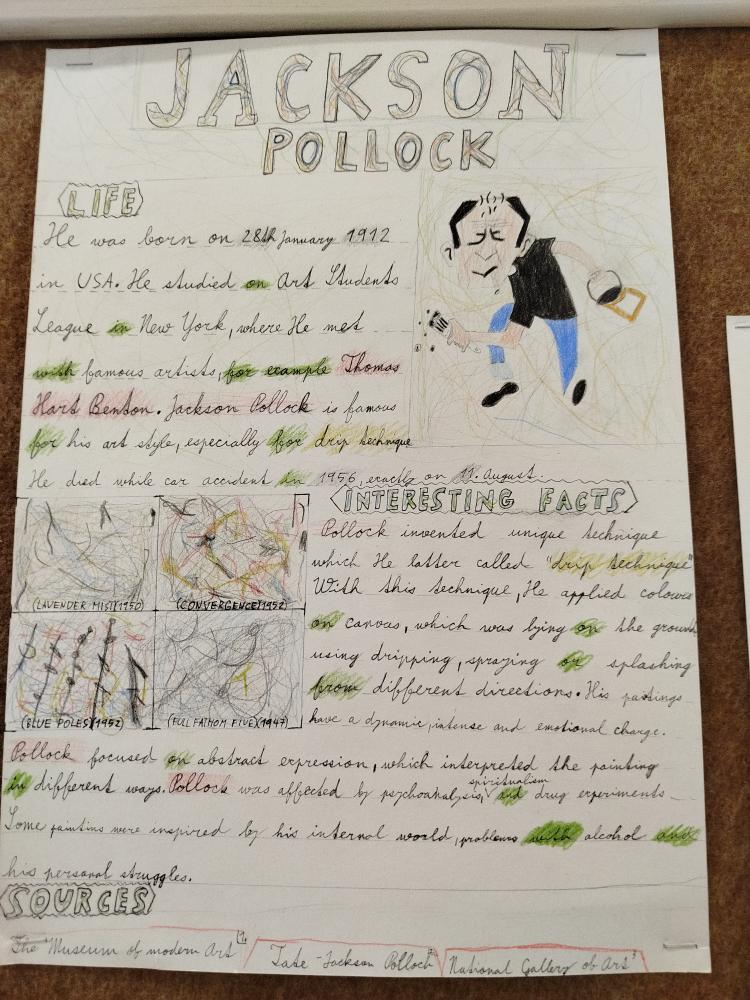 JACKSON
POLLOCK
LIFE
He was born on 28th January 1912
in USA. He studied on Art Students
League in New York, where He met
with famous artists, for example Thomas
Hart Benton. Jackson Pollock is famous
for his art style, especially for drip technique
He died while car accident in 1956, exactly on 11. August.
(LAVENDER MIST)(1950)
(CONVERGENCE)(1952)
(BLUE POLES)(1952)
(FULL FATHOM FIVE)(1947)
INTERESTING FACTS
Pollock invented unique technique
which He latter called "drip technique"
With this technique, He applied colours
on canvas, which was lying on the ground
using dripping, spraying or splashing
from different directions. His paitings
have a dynamic, intense and emotional charge.
Pollock focused on abstract expression, which interpreted the painting
in different ways. Pollock was affected by psychoanalysis, spiritualism and drug experiments
Some paintins were inspired by his internal world, problems with alcohol and
his personal struggles.
SOURCES
The "Museum of modern Art" 1
Tate - Jackson Pollock 2
National Gallery of Art 3